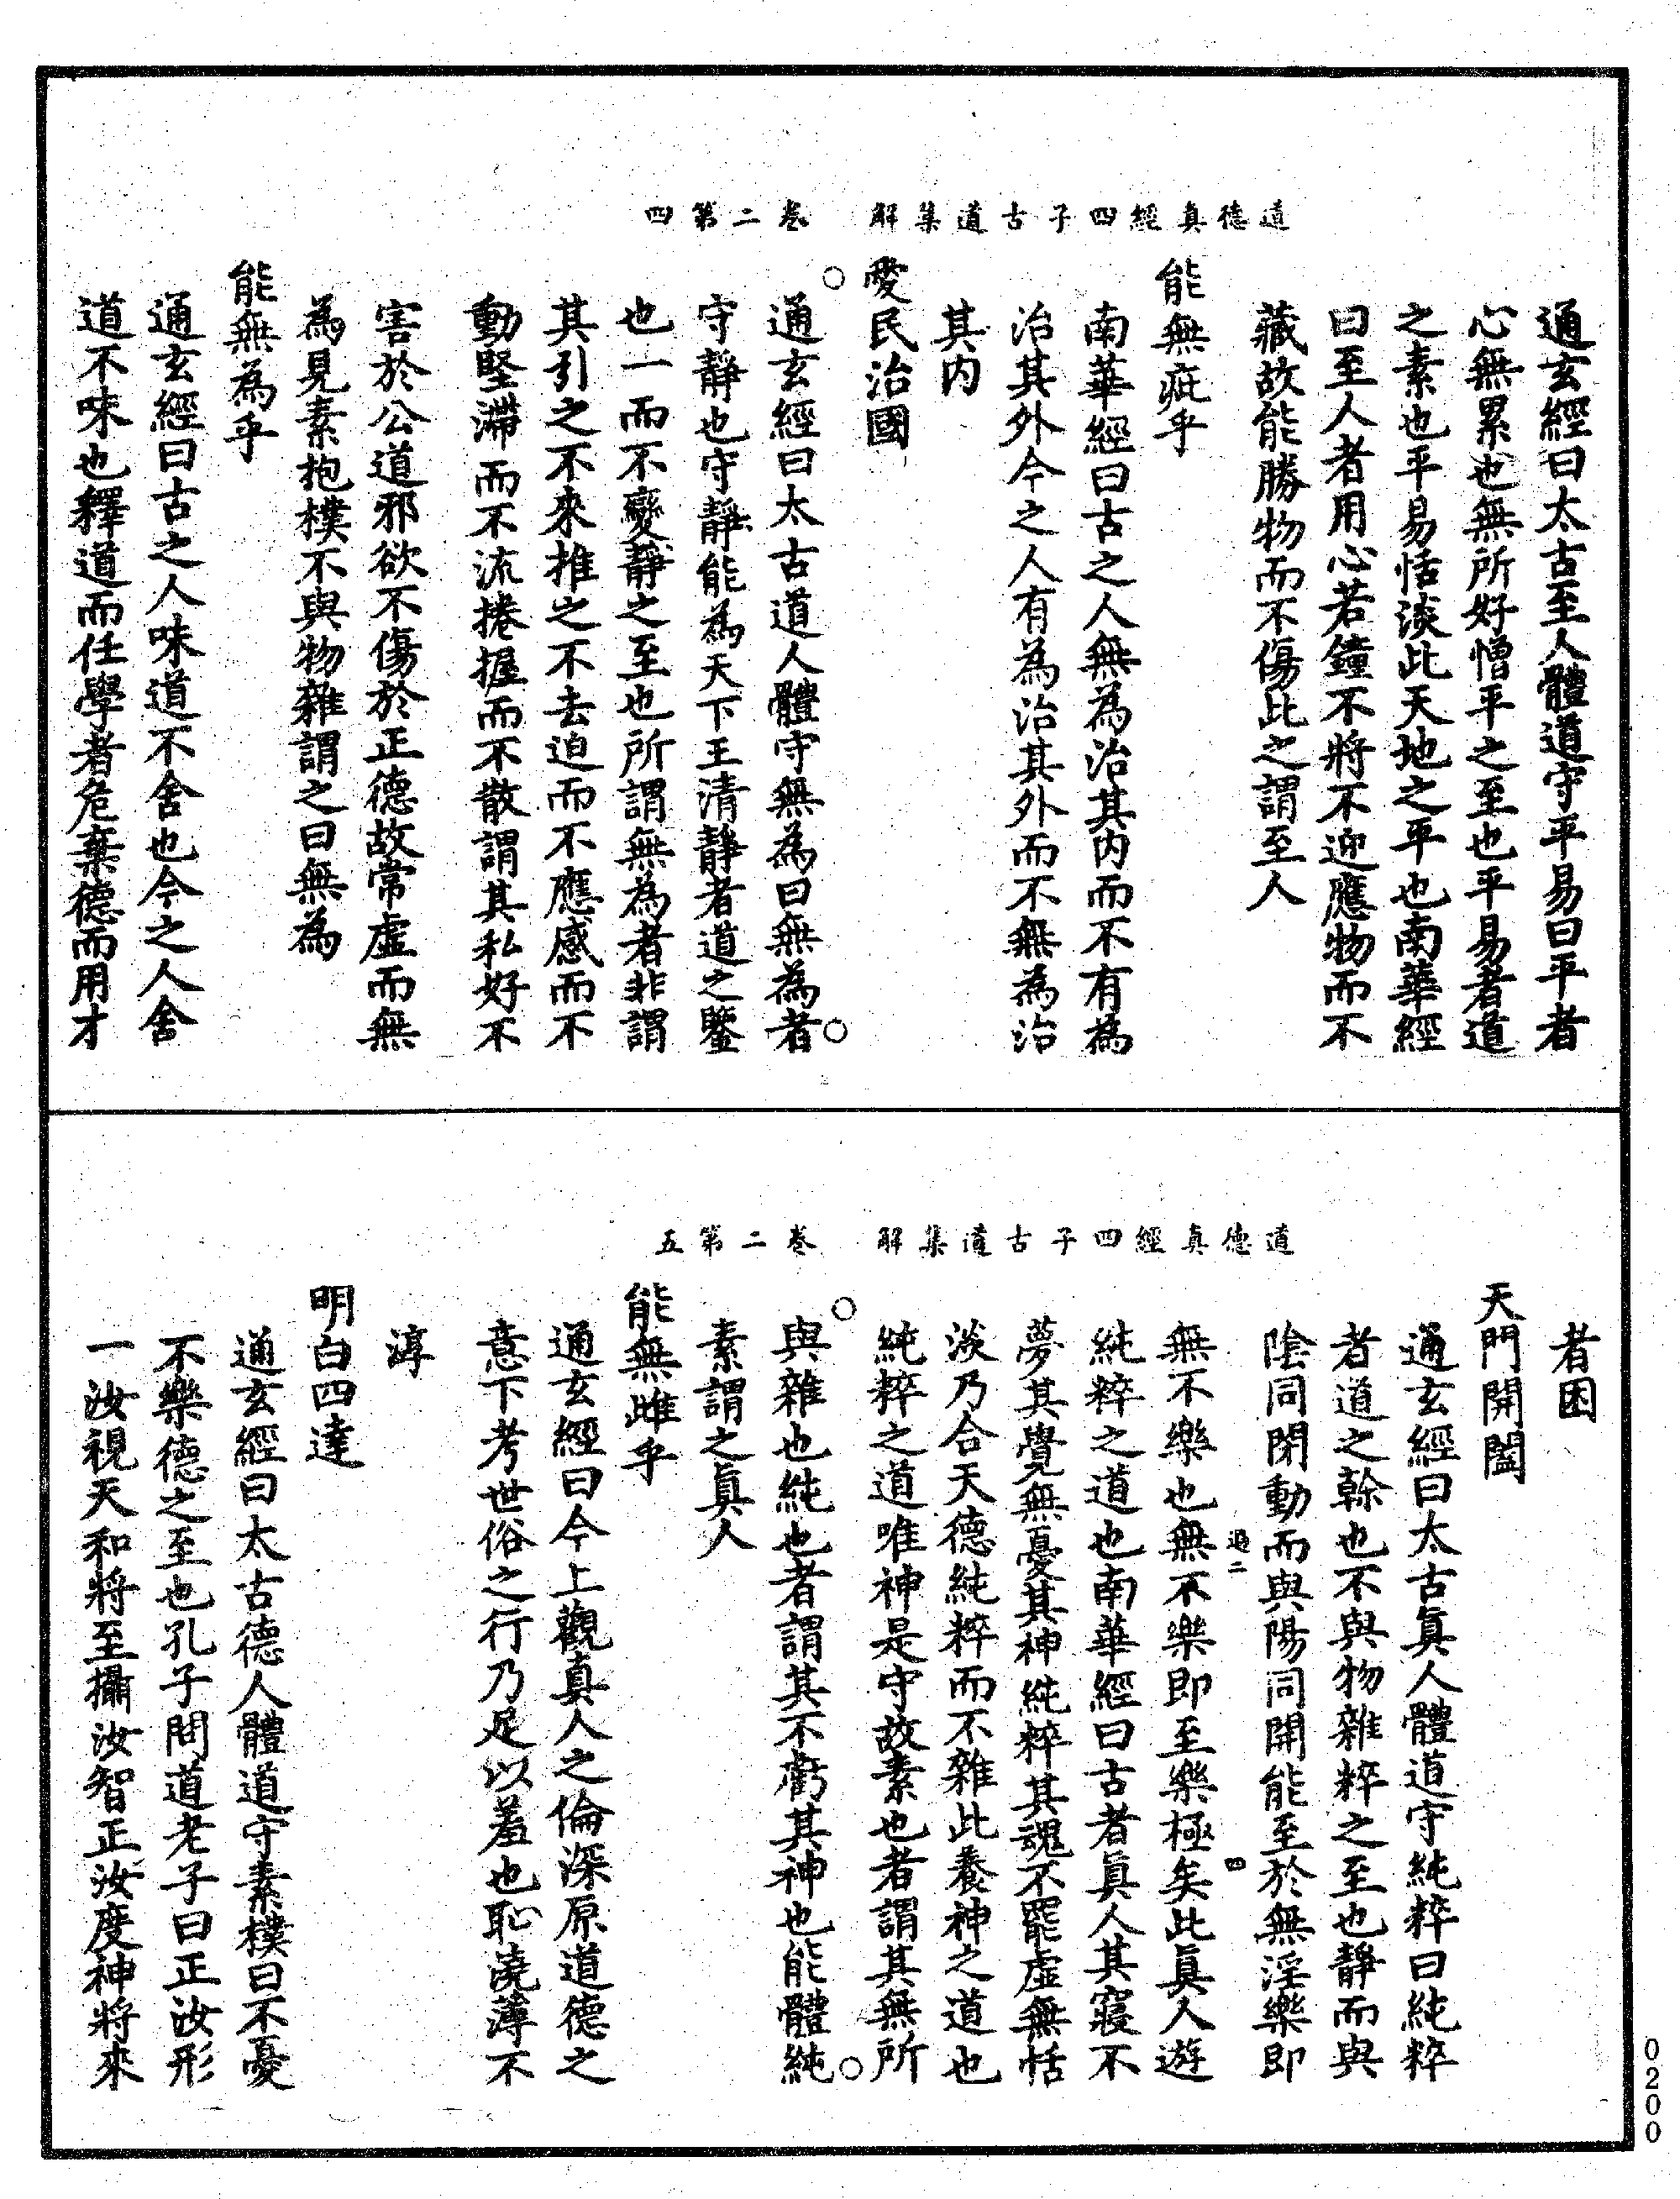 道德真經四子古道集解　卷二第四
通玄經曰太古至人體道守平易曰平者
心無累也無所好憎平之至也平易者道
之素也平易恬淡此天地之平也南華經
曰至人者用心若鐘不將不迎應物而不
藏故能勝物而不傷此之謂至人
能無疵乎
南華經曰古之人無為治其內而不有為
治其外今之人有為治其外而不無為治
其內
愛民治國
通玄經曰太古道人體守無為曰無為者
守靜也守靜能為天下王清靜者道之鑒
也一而不變靜之至也所謂無為者非謂
其引之不來推之不去迫而不應感而不
動堅滯而不流捲握而不散謂其私好不
害於公道邪欲不傷於正德故常虛而無
為見素抱樸不與物雜謂之曰無為
能無為乎
通玄經曰古之人味道不舍也今之人舍
道不味也釋道而任學者危棄德而用才
道德真經四子古道集解　卷二第五
者困
天門開闔
通玄經曰太古真人體道守純粹曰純粹
者道之榦也不與物雜粹之至也靜而與
陰同閉動而與陽同開能至於無淫樂即
過二
四
無不樂也無不樂即至樂極矣此真人遊
純粹之道也南華經曰古者真人其寢不
夢其覺無憂其神純粹其魂不罷虛無恬
淡乃合天德純粹而不雜此養神之道也
純粹之道唯神是守故素也者謂其無所
與雜也純也者謂其不虧其神也能體純
素謂之真人
能無雌乎
通玄經曰今上觀真人之倫深原道德之
意下考世俗之行乃足以羞也恥澆薄不
淳
明白四達
通玄經曰太古德人體道守素樸曰不憂
不樂德之至也孔子問道老子曰正汝形
一汝視天和將至攝汝智正汝度神將來
0200